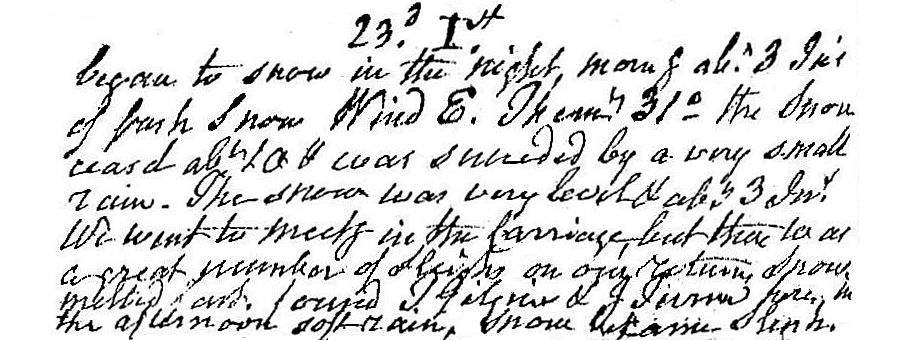 23.d I.st
began to snow in the night, morng abt. 3 Ins
of fresh Snow Wind E. Themr. 31° the Snow
ceasd abt. 10 & was succeded by a very small
rain. The snow was very level & abt. 3 Ins.
We went to meetg in the Carriage, but there was
a great number of sleighs on our return, Snow
melted fast. found J. &
the afternoon soft rain, Snow became Slush.